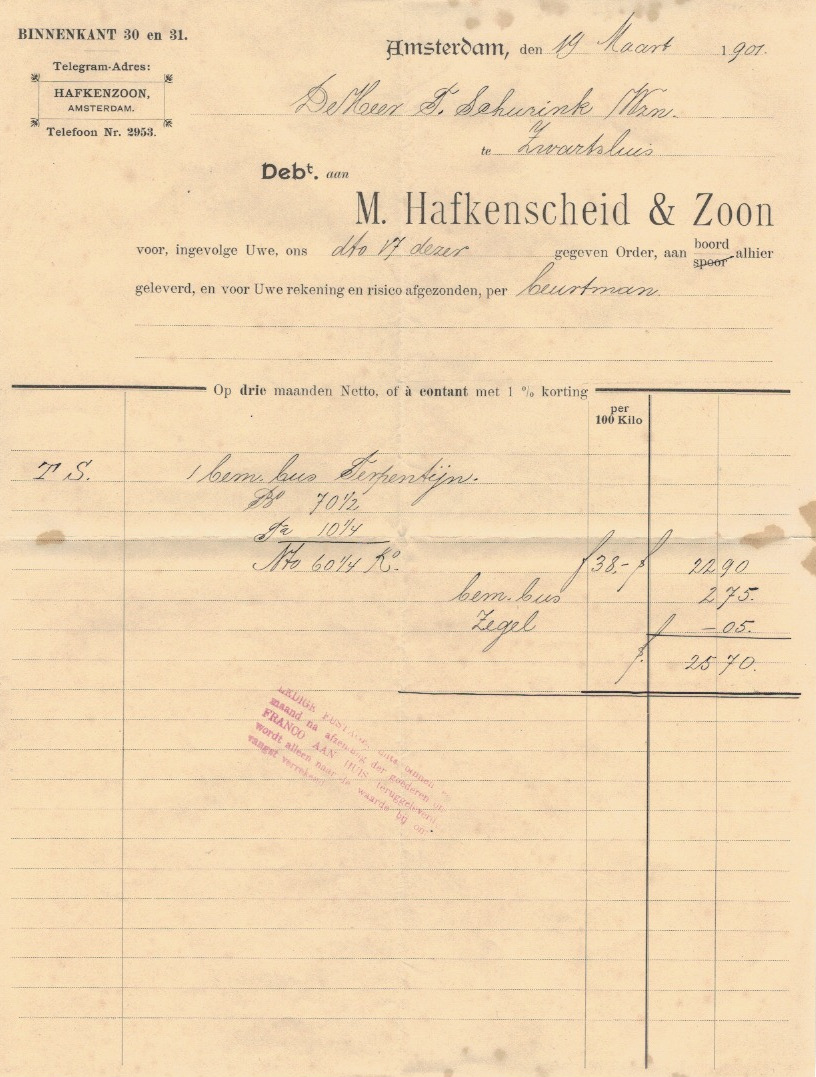 BINNENKANT 30 en 31.
Telegram-Adres:
HAFKENZOON,
AMSTERDAM.
Telefoon Nr. 2953.
Amsterdam, den 19 Maart 1901.
De Heer T. Schurink Wzn.
te Zwartsluis
Debt. aan
M. Hafkenscheid & Zoon
voor, ingevolge Uwe, ons dto 17 dezer gegeven Order, aan boord spoor alhier
geleverd, en voor Uwe rekening en risico afgezonden, per beurtman.
Op drie maanden Netto, of à contant met 1 % korting
per
100 Kilo
T S. 1 bem. bus Terpentijn.
Bo 70 1/2
Ta 10 1/4
Nto 60 1/4 Ko. f 38,- f 22 90
bem. bus 2 75.
Zegel f - 05.
f. 25 70.
LEDIGE binnen
maand na afzending der goederen
FRANCO AAN HUIS teruggeleverd,
wordt alleen naar de waarde bij
vangst